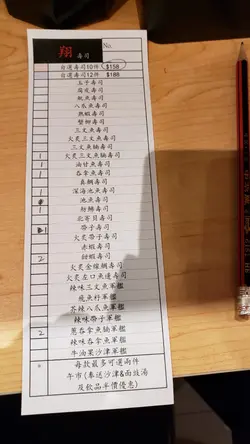 翔 壽司 No.
自選壽司10件 $158
自選壽司12件 $188
玉子壽司
腐皮壽司
魷魚壽司
八爪魚壽司
熟蝦壽司
蟹柳壽司
三文魚壽司
火炙三文魚壽司
三文魚腩壽司
1 火炙三文魚腩壽司
1 油甘魚壽司
1 吞拿魚壽司
真鯛壽司
1 深海池魚壽司
池魚壽司
1 劍魚壽司
北寄貝壽司
1 帶子壽司
火炙帶子壽司
赤蝦壽司
2 甜蝦壽司
火炙金縁鯛壽司
火炙左口魚邊壽司
辣味三文魚軍艦
飛魚籽軍艦
芥辣八爪魚軍艦
辣味帶子軍艦
2 蔥吞拿魚軍艦
辣味吞拿魚軍艦
牛油果沙津軍艦
* 每款最多可選兩件
午市(奉送沙津&麵豉湯
及飲品半價優惠)